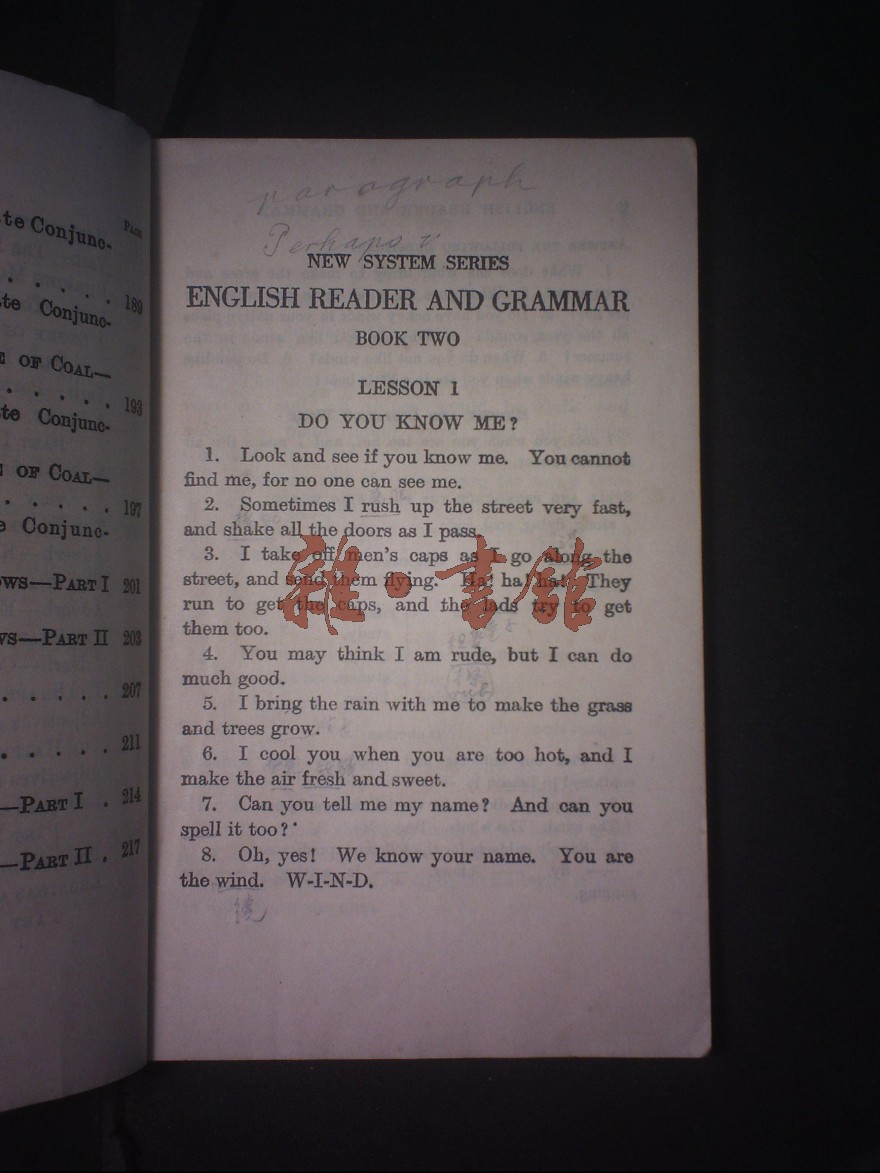 te Conjunc-
PAGE
. . . . . 189
te Conjunc-
E OF COAL—
. . . . . 193
te Conjunc-
E OF COAL—
. . . . . 197
e Conjunc-
WS—PART I 201
VS—PART II 203
. . . . . 207
. . . . . 211
—PART I . 214
—PART II . 217
paragraph
Perhaps
NEW SYSTEM SERIES
ENGLISH READER AND GRAMMAR
BOOK TWO
LESSON 1
DO YOU KNOW ME?
1. Look and see if you know me. You cannot
find me, for no one can see me.
2. Sometimes I rush up the street very fast,
and shake all the doors as I pass.
3. I take off men's caps as I go along the
street, and send them flying. Ha! ha! ha! They
run to get the caps, and the lads try to get
them too.
4. You may think I am rude, but I can do
much good.
5. I bring the rain with me to make the grass
and trees grow.
6. I cool you when you are too hot, and I
make the air fresh and sweet.
7. Can you tell me my name? And can you
spell it too?
8. Oh, yes! We know your name. You are
the wind. W-I-N-D.
雜·書館